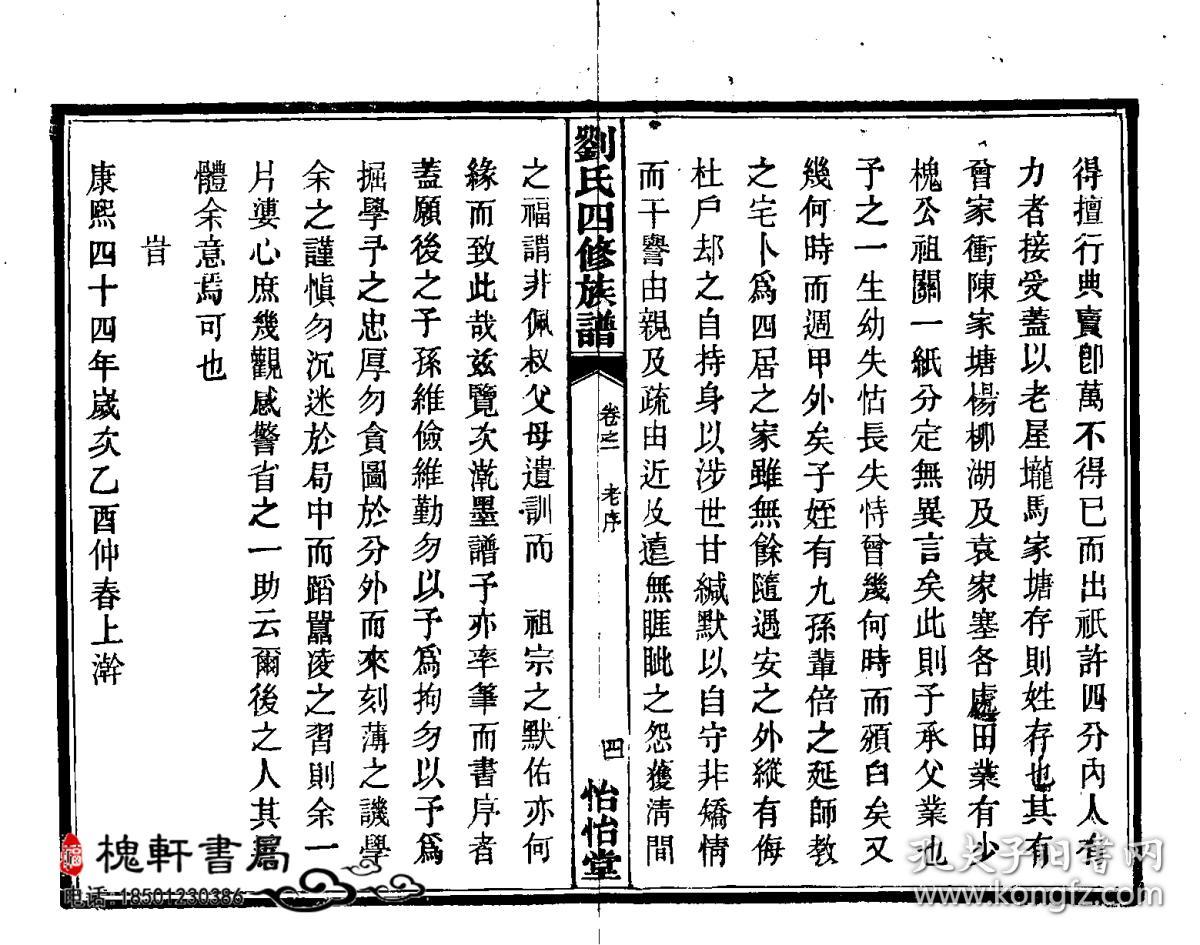 得擅行典賣卽萬不得已而出祇許四分內人有
力者接受蓋以老屋壠馬家塘存則姓存也其有
曾家衝陳家塘楊柳湖及袁家塞各處田業有少
槐公祖鬮一紙分定無異言矣此則予承父業也
予之一生幼失怙長失恃曾幾何時而頒白矣又
幾何時而週甲外矣子姪有九孫輩倍之延師教
之宅卜爲四居之家雖無餘隨遇安之外縱有侮
杜戶却之自持身以涉世甘緘默以自守非矯情
而干譽由親及疏由近及遠無睚眦之怨獲淸間
劉氏四修族譜
卷之一 老序
四
怡怡堂
之福謂非佩叔父母遺訓而 祖宗之默佑亦何
緣而致此哉兹覽次漸墨譜予亦率筆而書序者
蓋願後之子孫維儉維勤勿以予爲拘勿以予爲
掘學予之忠厚勿貪圖於分外而來刻薄之譏學
余之謹愼勿沉迷於局中而蹈囂凌之習則余一
片婆心庶幾觀感警省之一助云爾後之人其
體余意焉可也
旹
康熙四十四年歲次乙酉仲春上澣
槐軒書局
电话:18501230386
孔夫子旧書网
www.kongfz.com